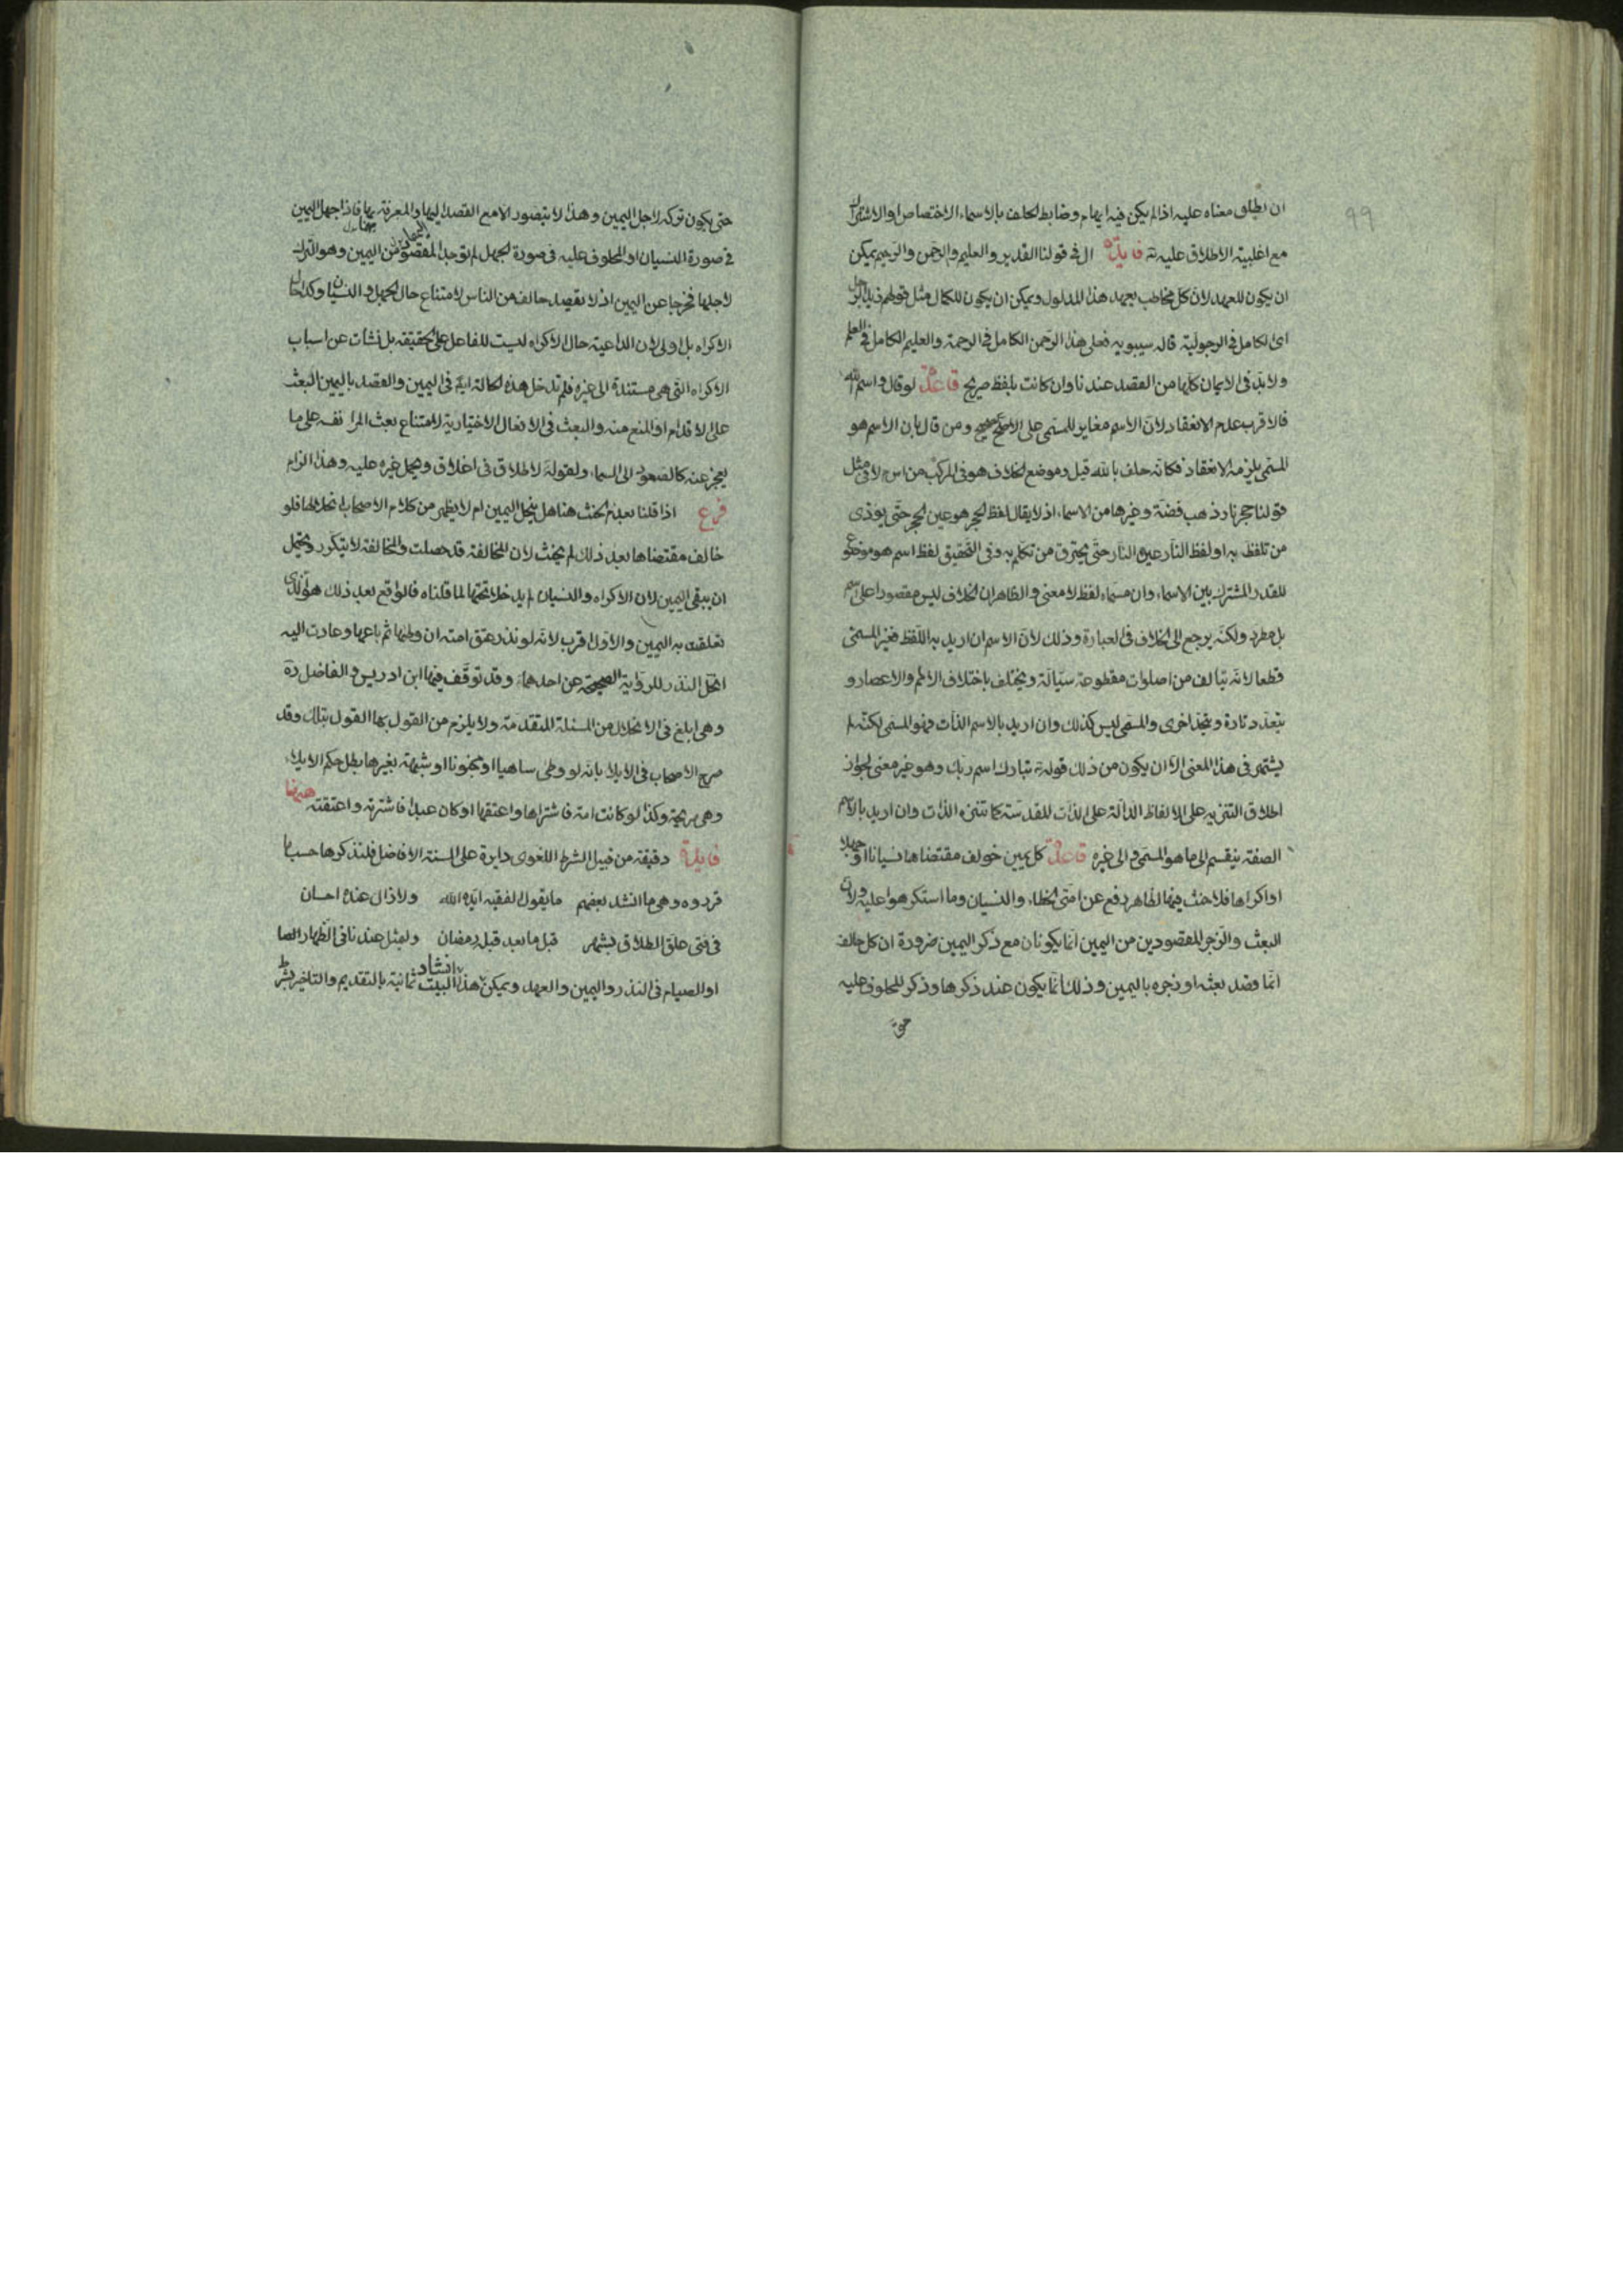 99
ان يطلق معناه عليه اذا لم يكن فيه ايهام وضابط الحلف بالاسماء الاختصاص او الاشتراك
مع اغلبية الاطلاق عليه تع فايدة ال فى قولنا القدير والعليم والرحمن والرحيم يمكن
ان يكون للعهد لان كل مخاطب يعهد هذا المدلول ويمكن ان يكون للكمال مثل قولهم زيد الرجل
اى الكامل فى الرجولية قاله سيبويه فعلى هذا الرحمن الكامل فى الرحمة والعليم الكامل فى العلم
ولابد فى الايمان كلها من القصد عندنا وان كانت بلفظ صريح قاعدة لو قال واسم الله
فالاقرب عدم الانعقاد لان الاسم مغاير للمسمى على الاصح ومن قال بان الاسم هو
المسمى يلزمه الانعقاد فكانه حلف بالله قيل وموضع الخلاف هو فى المركب من اس م لا فى مثل
قولنا حجر نار ذهب فضة وغيرها من الاسماء اذ لا يقال لفظ الحجر هو عين الحجر حتى يوذى
من تلفظ به او لفظ النار عين النار حتى يحترق من تكلم به وفى التحقيق لفظ اسم هو موضوع
للقدر المشترك بين الاسماء وان مسماه لفظ لا معنى والظاهر ان الخلاف ليس مقصورا على اسم
بل مطرد ولكنه يرجع الى الخلاف فى العبارة وذلك لان الاسم ان اريد به اللفظ فغير المسمى
قطعا لانه يتالف من اصلوات مقطوعة سيالة ويختلف باختلاف الامم والاعصار و
يتعدد تارة ويتحد اخرى والمسمى ليس كذلك وان اريد بالاسم الذات فهو المسمى لكنه لم
يشتهر فى هذا المعنى الا ان يكون من ذلك قوله تع تبارك اسم ربك وهو غير معنى لجواز
اطلاق التنزيه على الالفاظ الدالة على الذات المقدسة كما تنزه الذات وان اريد بالاسم
الصفة ينقسم الى ما هو المسمى والى غيره قاعدة كل يمين خولف مقتضاها نسيانا او جهلا
او اكراها فلا حنث فيها لظاهر رفع عن امتى الخطاء والنسيان وما استكرهوا عليه ولان
البعث والزجر المقصودين من اليمين انما يكونان مع ذكر اليمين ضرورة ان كل حالف
انما قصد بعثه او زجره باليمين وذلك انما يكون عند ذكرها وذكر المحلوف عليه
حتى يكون تركه لاجل اليمين وهذا لا يتصور الا مع القصد اليها والمعرفة بها فاذا جهل اليمين
فى صورة النسيان او المحلوف عليه فى صورة الجهل لم توجد المقصود من اليمين وهو الترك
لاجلها فخرجا عن اليمين اذ لا يقصد حالف من الناس لامتناع حال الجهل والنسيان وكذا حال
الاكراه بل اولى لان الداعية حال الاكراه ليست للفاعل على الحقيقة بل نشات عن اسباب
الاكراه التى هى مستندة الى غيره فلم تدخل هذه الحالة ايضا فى اليمين والقصد باليمين البعث
على الاقدام او المنع منه والبعث فى الافعال الاختيارية لامتناع بعث المرا نفسه على ما
يعجز عنه كالصعود الى السماء ولقوله لا طلاق فى اغلاق ويحمل غيره عليه وهذا الزام
فرع اذا قلنا بعدم الحنث هنا هل ينحل اليمين ام لا يظهر من كلام الاصحاب انحلالها فلو
خالف مقتضاها بعد ذلك لم يحنث لان المخالفة قد حصلت والمخالفة لا يتكرر ويحتمل
ان يبقى اليمين لان الاكراه والنسيان لم يدخلا تحتها لما قلناه فالواقع بعد ذلك هو الذى
تعلقت به اليمين والاول اقرب لانه لو نذر عتق امته ان وطئها ثم باعها وعادت اليه
انحل النذر للرواية الصحيحة عن احدهما وقد توقف فيها ابن ادريس والفاضل رة
وهى ابلغ فى الانحلال من المسئلة المتقدمة ولا يلزم من القول بها القول بتلك وقد
صرح الاصحاب فى الايلاء بانه لو وطى ساهيا او مجنونا او شبهة بغيرها بطل حكم الايلاء
وهى مريحة وكذا لو كانت امة فاشتراها واعتقها او كان عبدا فاشترته واعتقته
فايدة دقيقة من قبيل الشرط اللغوى دايرة على السنة الافاضل فلنذكرها حسب ما
قرروه وهى ما انشد بعضهم ما يقول الفقيه ايده الله ولا زال عنده احسان
فى فتى علق الطلاق بشهر قبل ما بعد قبله رمضان ولمثل عندنا فى الظهار الصا
او الصيام فى النذر واليمين والعهد ويمكن انشاد هذا البيت ثمانية بالتقديم والتاخير بشر